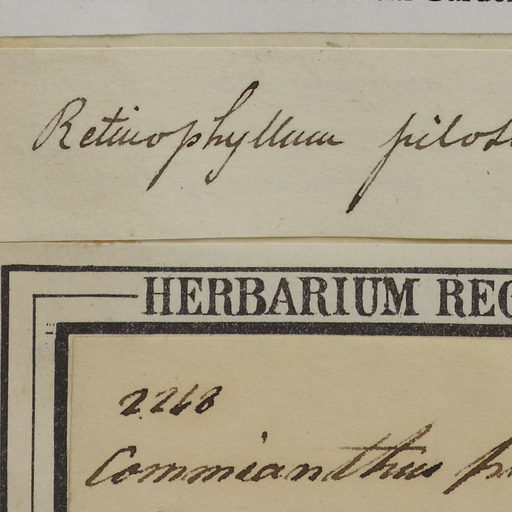 Retinophyllum pilos
HERBARIUM REG
2268
Commianthus p